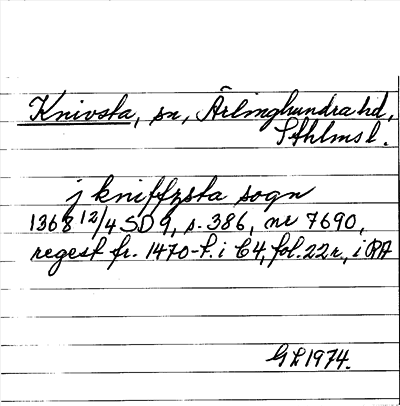 Knivsta, sn, Ärlinghundra hd,
Sthlms l.
j kniffzsta sogn
1368 12/4 SD 9, s. 386, nr 7690,
regest fr. 1470-t. i C4, fol. 22 r, i RA
GL 1974.